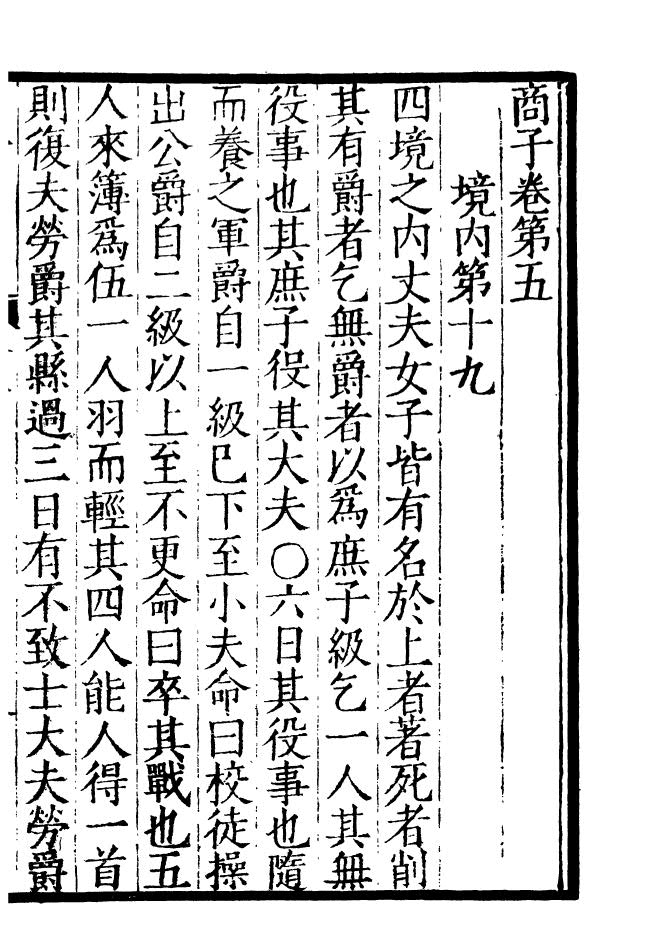 商子卷第五
境内第十九
四境之内丈夫女子皆有名於上者著死者削
其有爵者乞無爵者以爲庶子級乞一人其無
役事也其庶子役其大夫〇六日其役事也隨
而養之軍爵自一級巳下至小夫命曰校徒操
出公爵自二級以上至不更命曰卒其戰也五
人來簿爲伍一人羽而輕其四人能人得一首
則復夫勞爵其縣過三日有不致士大夫勞爵